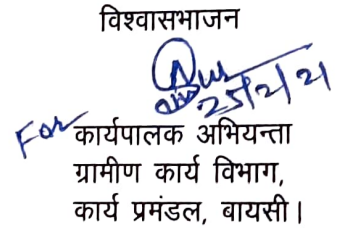 विश्वासभाजन
25/2/21
For कार्यपालक अभियन्ता
ग्रामीण कार्य विभाग,
कार्य प्रमंडल, बायसी।